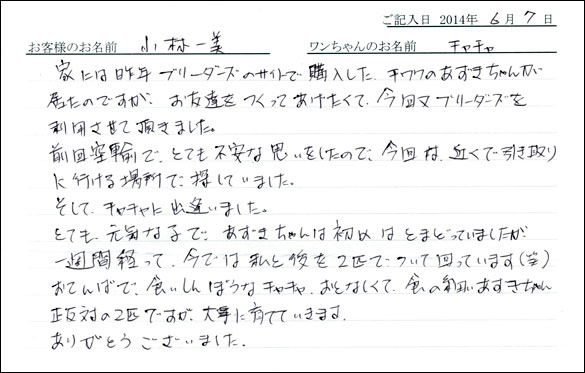 ご記入日 2014年 6月 7日
お客様のお名前 小林一美 ワンちゃんのお名前 チャチャ
家には昨年 ブリーダーズのサイトで購入した チワワのあずきちゃんが
居たのですが、お友達をつくってあげたくて、今回又ブリーダーズを
利用させて頂きました。
前回空輸で、とても不安な思いをしたので、今回は、近くで引き取り
に行ける場所で探していました。
そして、チャチャに出逢いました。
とても、元気な子で、あずきちゃんは初めはとまどっていましたが
一週間経って、今では私と後を2匹でついて回っています(笑)
おてんばで、食いしんぼうなチャチャ、おとなしくて、食の細いあずきちゃん
正反対の2匹ですが、大事に育てていきます。
ありがとうございました。